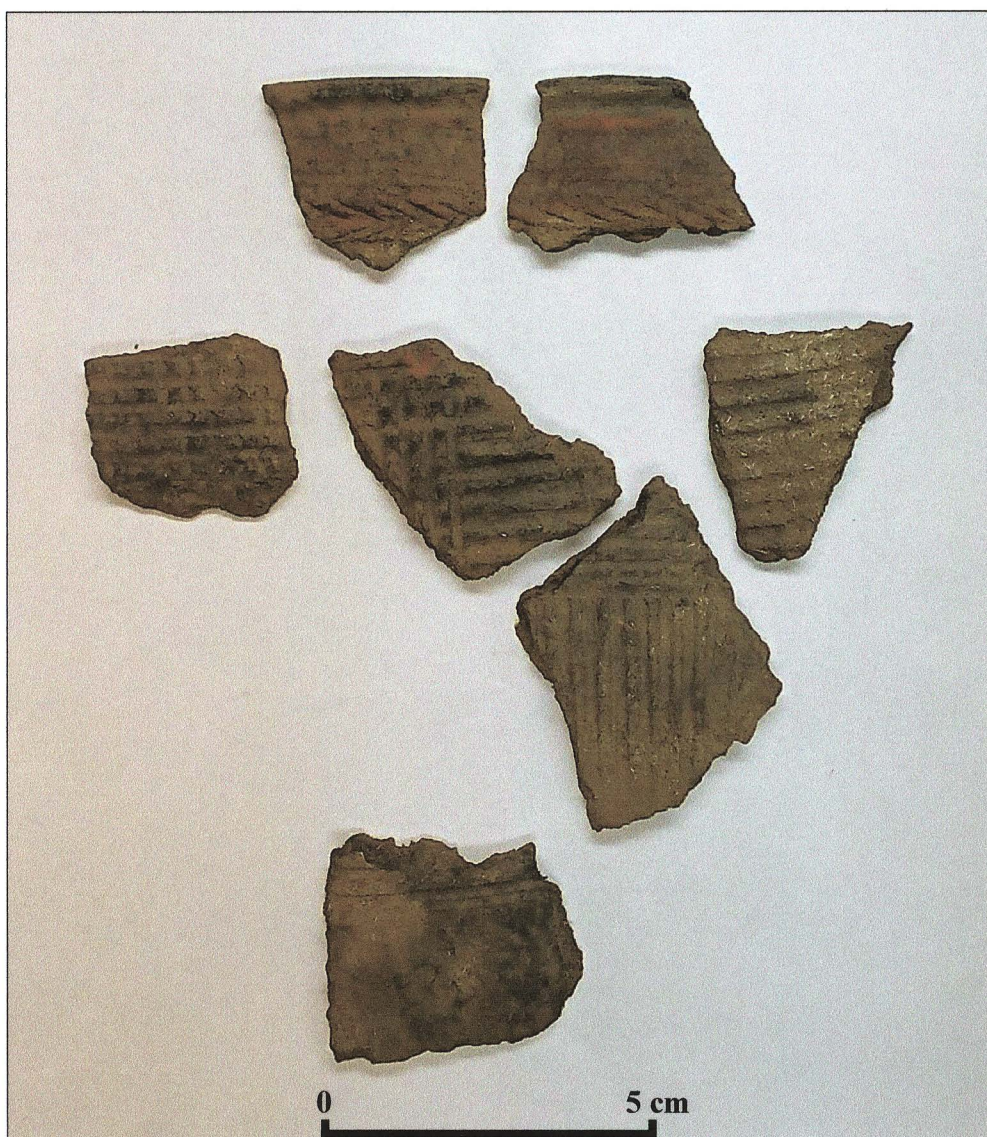 0 5 cm